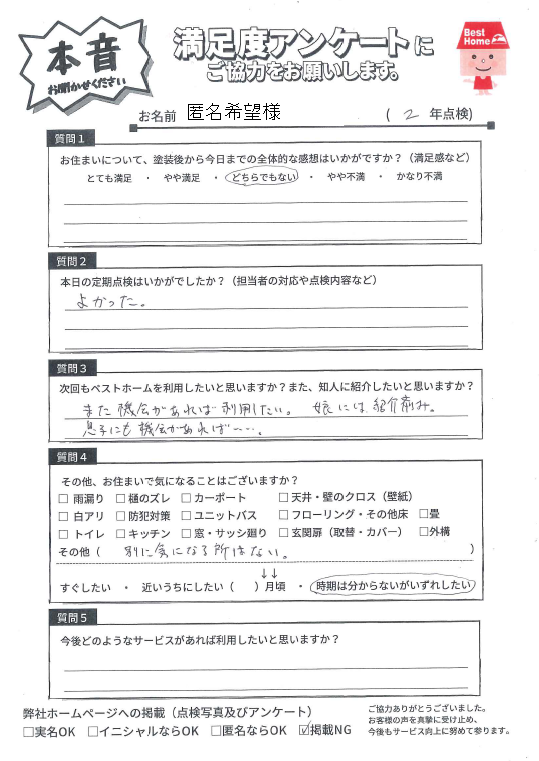 本音
お聞かせください
満足度アンケートに
ご協力をお願いします。
Best Home
お名前 匿名希望様 ( 2 年点検)
質問1
お住まいについて、塗装後から今日までの全体的な感想はいかがですか？（満足感など）
とても満足 ・ やや満足 ・ どちらでもない ・ やや不満 ・ かなり不満
質問2
本日の定期点検はいかがでしたか？（担当者の対応や点検内容など）
よかった。
質問3
次回もベストホームを利用したいと思いますか？また、知人に紹介したいと思いますか？
また機会があれば利用したい。 娘には紹介済み。
息子にも機会があれば……。
質問4
その他、お住まいで気になることはございますか？
□ 雨漏り □ 樋のズレ □ カーポート □ 天井・壁のクロス（壁紙）
□ 白アリ □ 防犯対策 □ ユニットバス □ フローリング・その他床 □畳
□ トイレ □ キッチン □ 窓・サッシ廻り □ 玄関扉（取替・カバー） □外構
その他（ 別に気になる所はない。 ）
↓↓
すぐしたい ・ 近いうちにしたい（ ）月頃 ・ 時期は分からないがいずれしたい
質問5
今後どのようなサービスがあれば利用したいと思いますか？
弊社ホームページへの掲載（点検写真及びアンケート）
□実名OK □イニシャルならOK □匿名ならOK ☑掲載NG
ご協力ありがとうございました。
お客様の声を真摯に受け止め、
今後もサービス向上に努めて参ります。